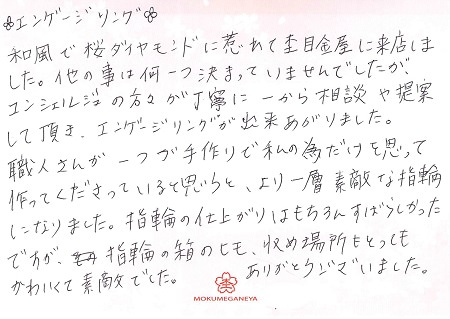 エンゲージリング
和風で桜ダイヤモンドに惹れて杢目金屋に来店しま
した。他の事は何一つ決まっていませんでしたが、
コンシェルジュの方々が丁寧に一から相談や提案
して頂き、エンゲージリングが出来あがりました。
職人さんが一つが手作りで私の為だけを思って
作ってくださっていると思うと、より一層素敵な指輪
になりました。指輪の仕上がりはもちろんすばらしかった
ですが、指輪の箱のヒモ、収め場所もとっても
かわいくて素敵でした。 ありがとうございました。
MOKUMEGANEYA